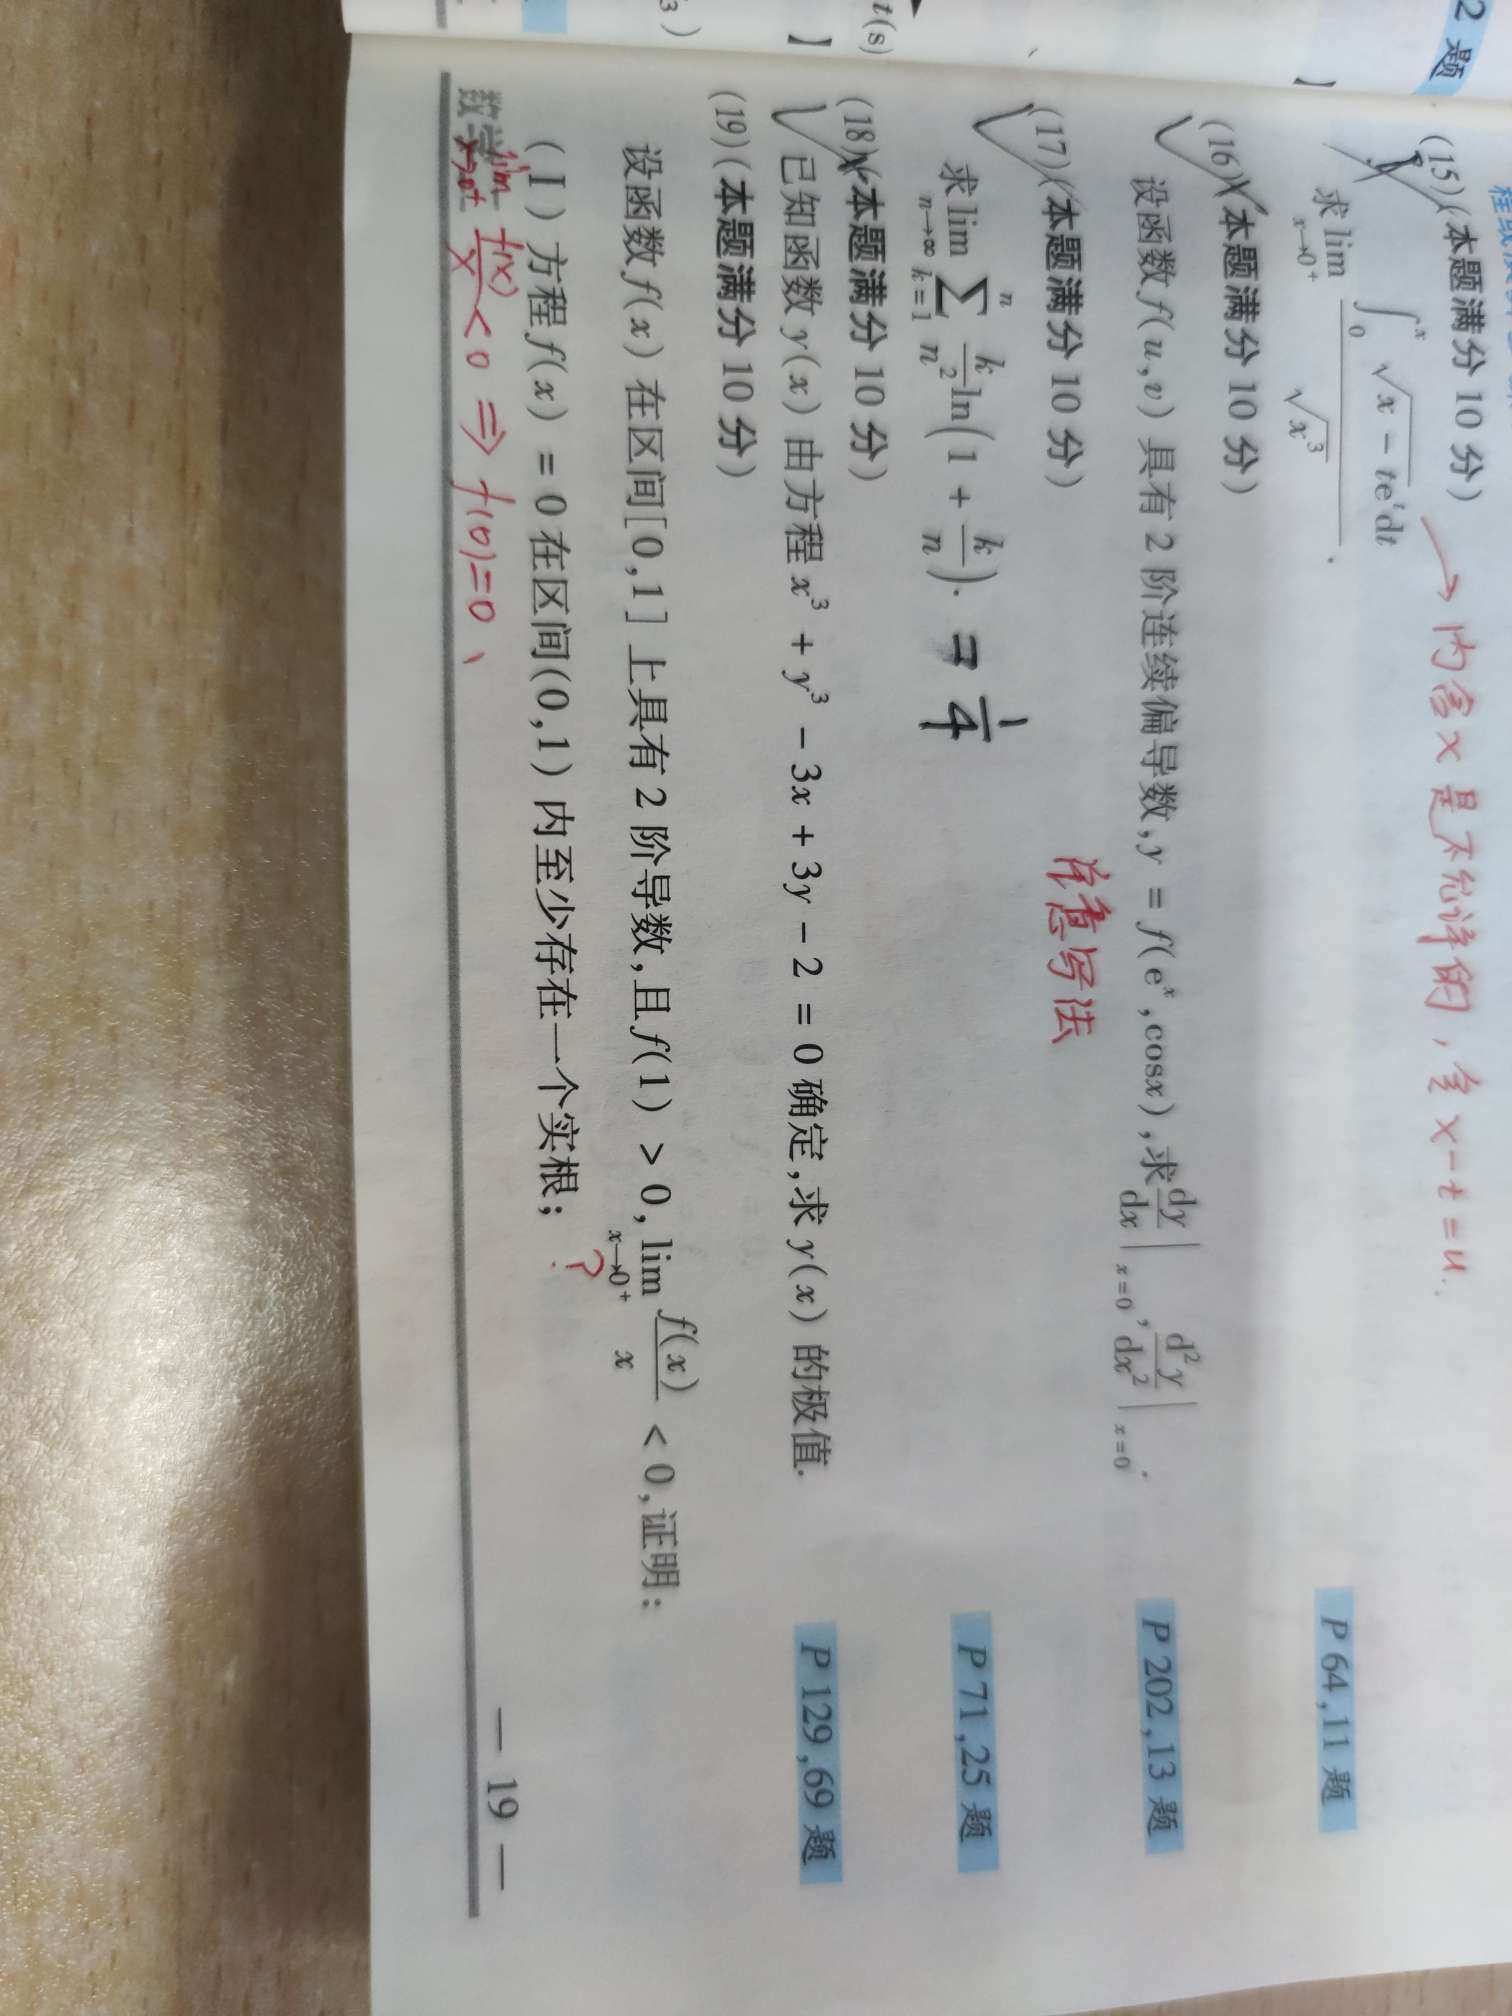 2 题
t(s)
】
】
3)
(15)(本题满分 10 分) → 内含 x 是不允许的, 令 x-t=u.
求 lim_{x→0⁺} \frac{∫_0^x √(x-t)e^t dt}{√(x³)}.
P 64,11 题
(16)(本题满分 10 分)
设函数 f(u,v) 具有 2 阶连续偏导数, y = f(e^x,cosx), 求 dy/dx|_{x=0}, d²y/dx²|_{x=0}.
P 202,13 题
(17)(本题满分 10 分) 注意写法
求 lim_{n→∞} ∑_{k=1}^{n} k/n² ln(1 + k/n). = 1/4
P 71,25 题
(18)(本题满分 10 分)
已知函数 y(x) 由方程 x³ + y³ - 3x + 3y - 2 = 0 确定, 求 y(x) 的极值.
P 129,69 题
(19)(本题满分 10 分)
设函数 f(x) 在区间[0,1] 上具有 2 阶导数, 且 f(1) > 0, lim_{x→0⁺} f(x)/x < 0, 证明:
(Ⅰ) 方程 f(x) = 0 在区间(0,1) 内至少存在一个实根; ?
lim_{x→0⁺} f(x)/x < 0 ⇒ f(0)=0、
— 19 —